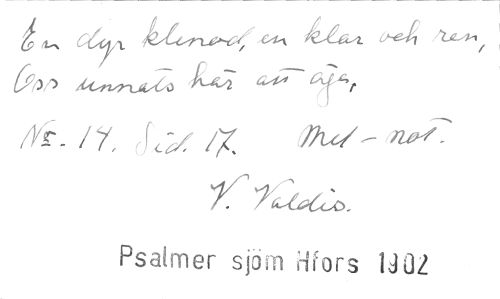 En dyr klenod, en klar och ren,
Oss unnats här att äga,
No. 14. Sid. 17. Mel-not.
V. Valdis.
Psalmer sjöm Hfors 1902